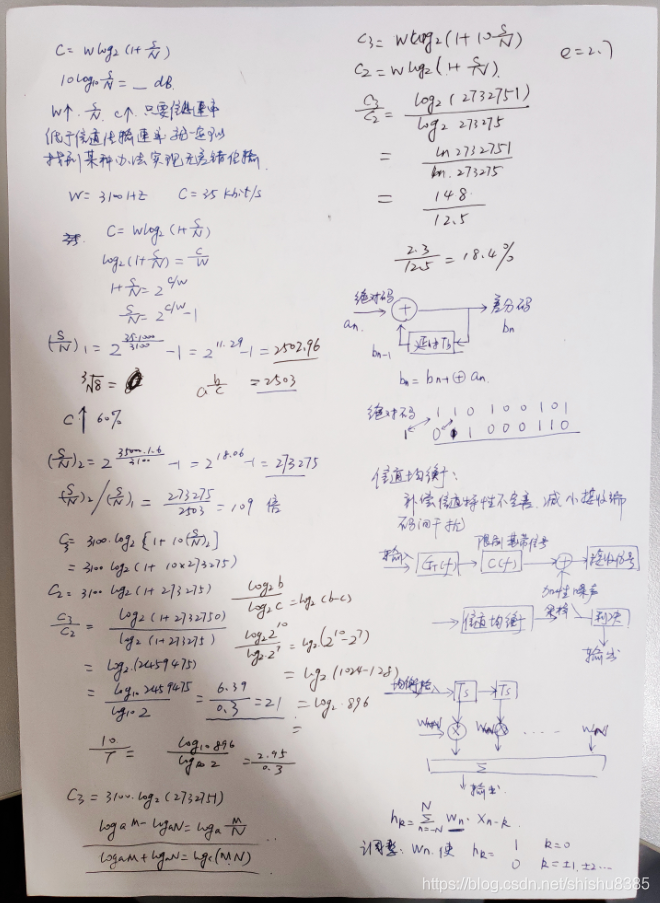 C = W log₂(1+S/N)
10 log₁₀ S/N = __ dB
W↑. S/N. C↑. 只要信息速率
低于信道传输速率 就一定可以
找到某种办法实现无差错传输.
W = 3100HZ C = 35 kbit/s
C = W log₂(1+S/N)
log₂(1+S/N) = C/W
1+S/N = 2^(C/W)
S/N = 2^(C/W) - 1
(S/N)₁ = 2^(35·1000/3100) - 1 = 2^11.29 - 1 = 2502.96
³√8 = a^(b/c) = 2503
C↑ 60%
(S/N)₂ = 2^(35000·1.6/3100) - 1 = 2^18.06 - 1 = 273275
(S/N)₂/(S/N)₁ = 273275/2503 = 109 倍
C₃ = 3100·log₂[1+10(S/N)₂]
= 3100 log₂(1+10×273275)
C₂ = 3100 log₂(1+273275) log₂b/log₂c = log₂(b-c)
C₃/C₂ = log₂(1+2732750)/log₂(1+273275) log₂2^10/log₂2^7 = log₂(2^10-2^7)
= log₂(2459475) = log₂(1024-128)
= log₁₀2459475/log₁₀2 = 6.39/0.3 = 21 = log₂·896
=
10/7 = log₁₀896/log₁₀2 = 2.95/0.3
C₃ = 3100·log₂(2732751)
logₐM - logₐN = logₐ M/N
logₐM + logₐN = logₐ(MN)
C₃ = W log₂(1+10 S/N)
e = 2.7
C₂ = W log₂(1+S/N)
C₃/C₂ = log₂(2732751)/log₂ 273275
= ln 2732751/ln. 273275
= 14.8/12.5
2.3/12.5 = 18.4%
绝对码 + 差分码
aₙ bₙ
bₙ₋₁ 延时Ts
bₙ = bₙ₋₁⊕aₙ
绝对码 1 1 0 1 0 0 1 0 1
1 0 1 0 0 0 1 1 0
信道均衡:
补偿信道特性不完善. 减小接收端
码间干扰
限制基带信号
输入 G_T(f) C(f) + 接收信号
加性噪声
信道均衡 采样 判决
输出
均衡 Ts Ts
× × ....
Σ
输出
hₖ = Σ(n=-N, N) Wₙ·Xₙ₋ₖ
调整: Wₙ. 使 hₖ = 1 k=0
0 k=±1,±2...
https://blog.csdn.net/shishu8385